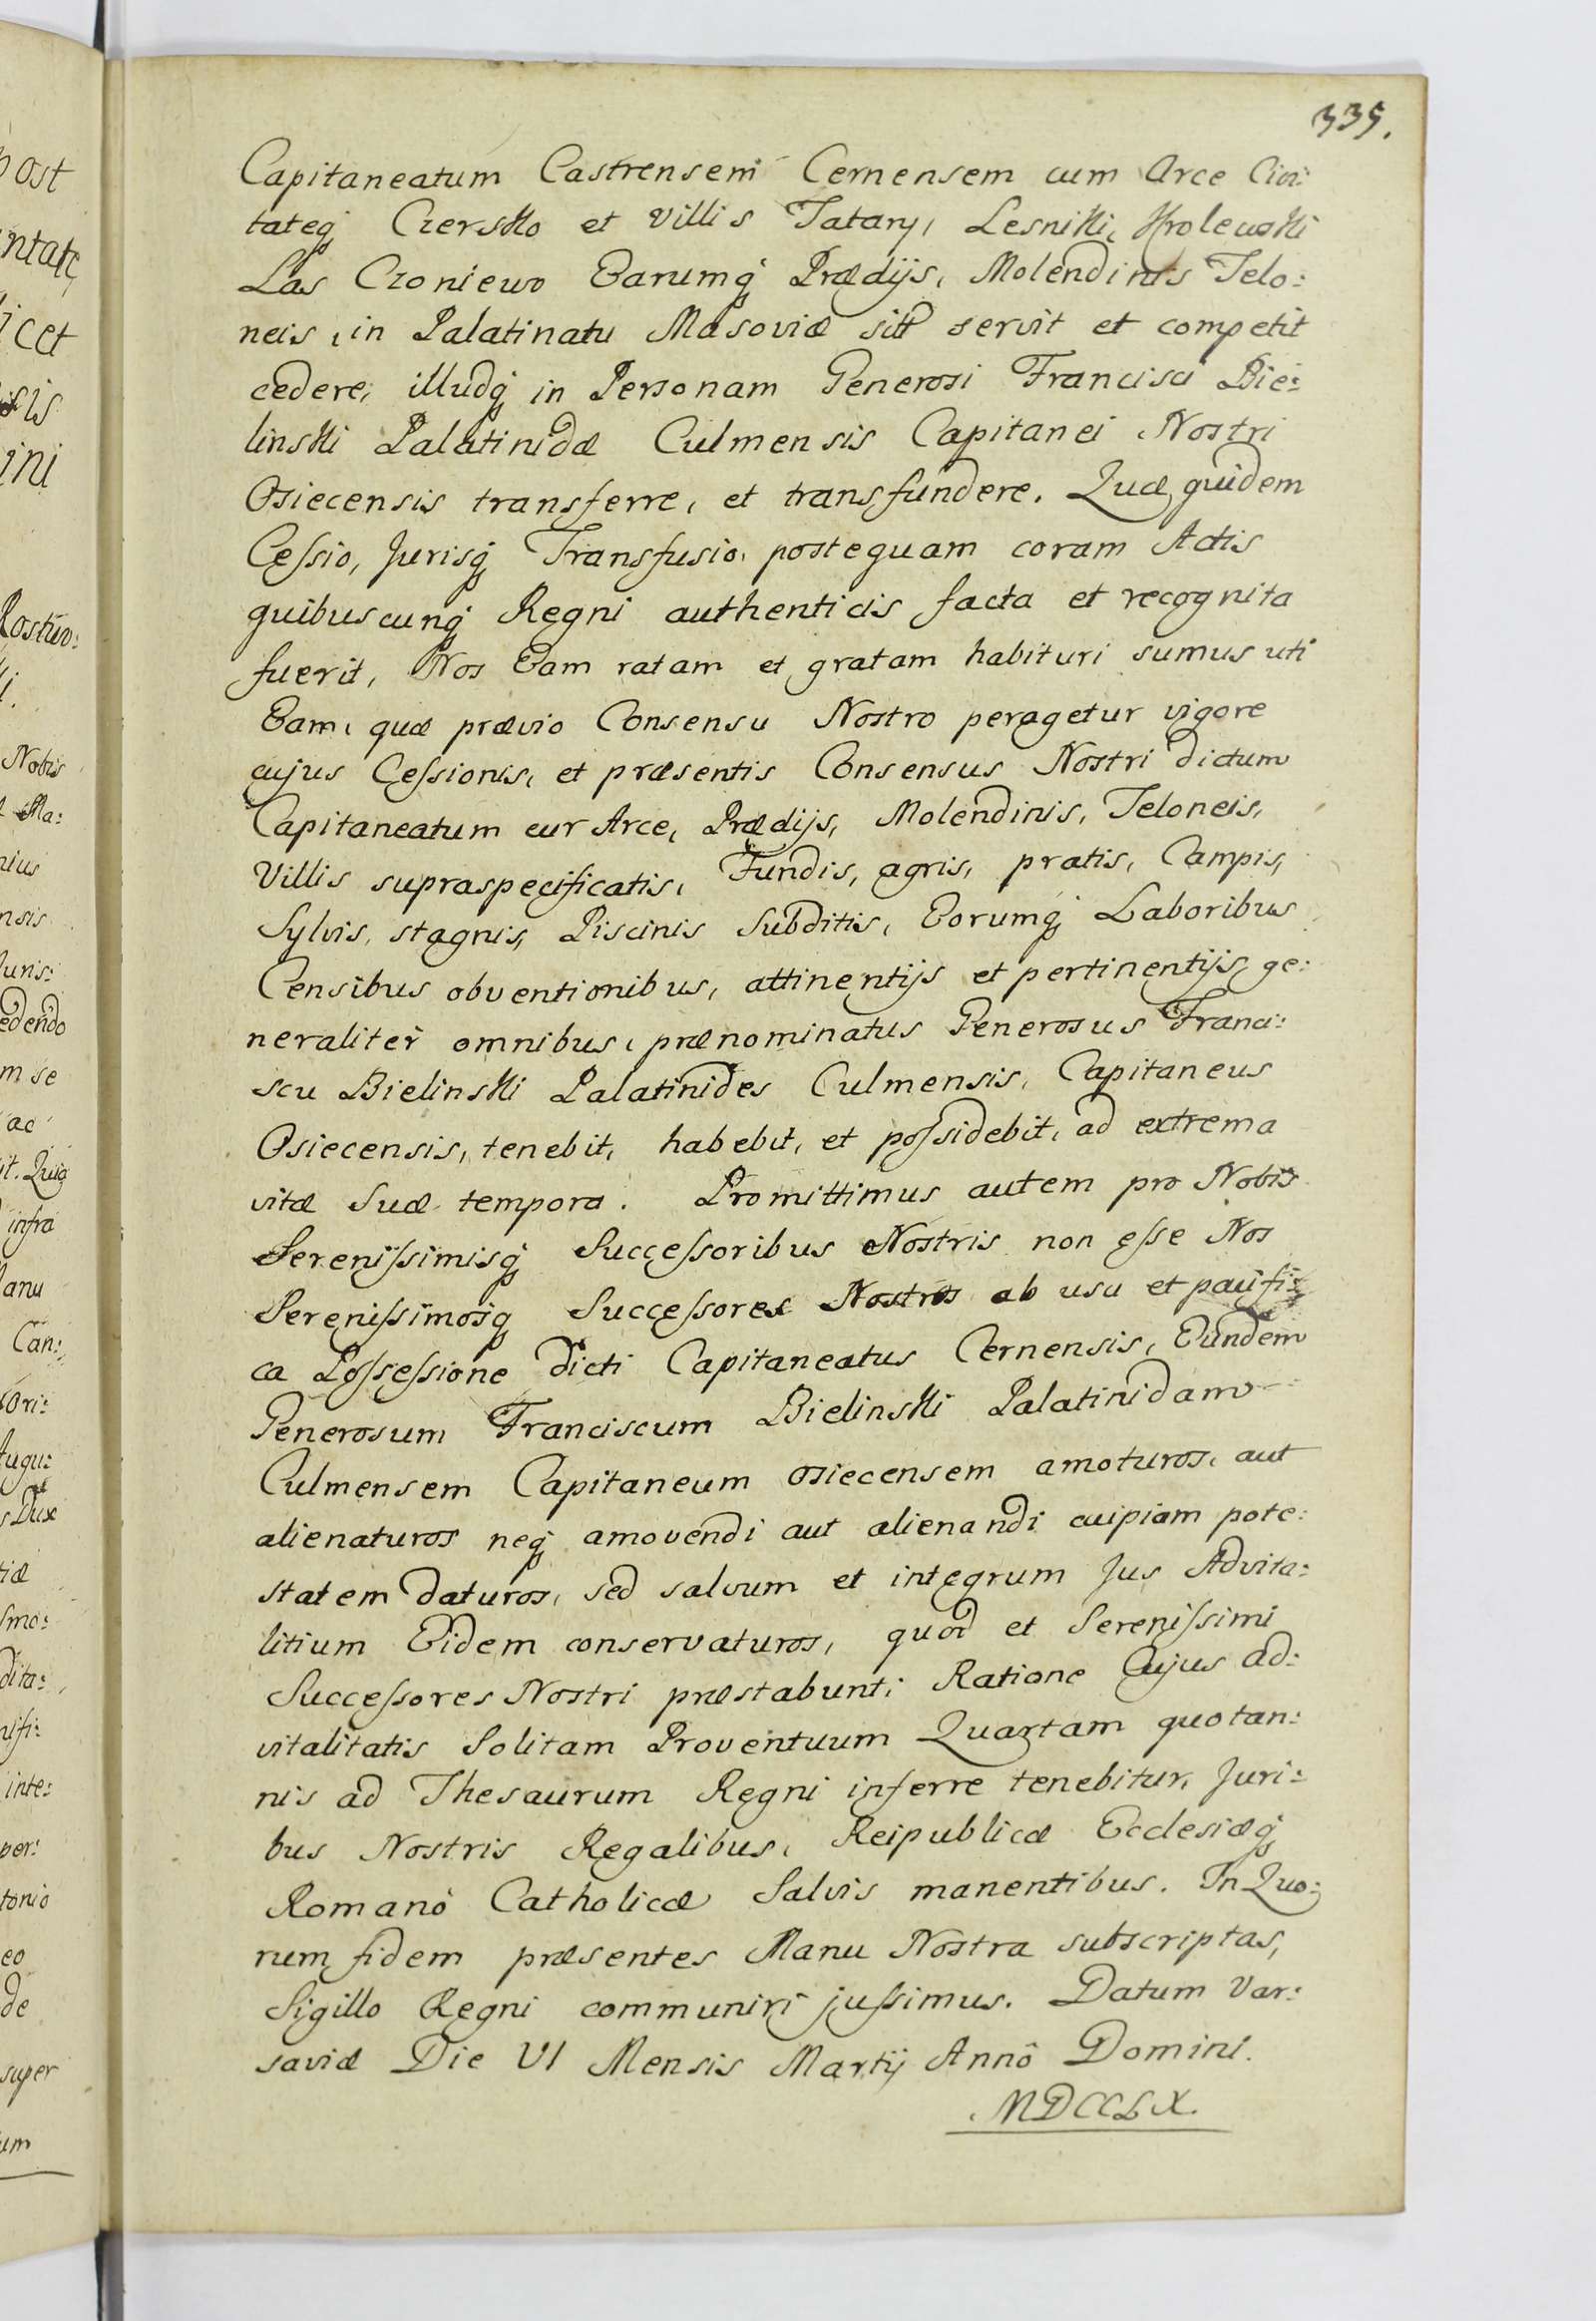 335.
Capitaneatum Castrensem Cernensem cum Arce Civi:
tateq Czersko et villis Tatary, Lesniki, Krolewski
Las Czoniewo Earumq Prædijs, Molendinis Telo:
neis, in Palatinatu Masoviæ sitt servit et competit
cedere, illudq in Personam Generosi Francisci Bie:
linski Palatinidæ Culmensis Capitanei Nostri
Osiecensis transferre, et transfundere. Quæ quidem
Cessio, Jurisq Transfusio, postequam coram Actis
quibuscunq Regni authenticis facta et recognita
fuerit, Nos Eam ratam et gratam habituri sumus uti
Eam, quæ prævio Consensu Nostro peragetur vigore
cujus Cessionis, et præsentis Consensus Nostri dictum
Capitaneatum cur Arce, Prædijs, Molendinis, Teloneis,
Villis supraspecificatis, Fundis, agris, pratis, Campis,
Sylvis, stagnis, Piscinis Subditis, Eorumq Laboribus
Censibus obventionibus, attinentijs et pertinentijs ge:
neraliter omnibus, prænominatus Generosus Franci:
scu Bielinski Palatinides Culmensis, Capitaneus
Osiecensis, tenebit, habebit, et possidebit, ad extrema
vitæ Suæ tempora. Promittimus autem pro Nobis
Serenissimisq Successoribus Nostris non esse Nos
Serenissimosq Successores Nostros ab usu et pacifi:
ca Possessione dicti Capitaneatus Cernensis, Eundem
Generosum Franciscum Bielinski Palatinidam
Culmensem Capitaneum Osiecensem amoturos, aut
alienaturos neq amovendi aut alienandi cuipiam pote:
statem daturos, sed salvum et integrum Jus Advita:
litium Eidem conservaturos, quod et Serenissimi
Successores Nostri præstabunt; Ratione Cujus ad:
vitalitatis Solitam Proventuum Quartam quotan:
nis ad Thesaurum Regni inferre tenebitur, Juri:
bus Nostris Regalibus, Reipublicæ Ecclesiæq
Romanô Catholicæ Salvis manentibus. In Quo:
rum fidem præsentes Manu Nostra subscriptas,
Sigillo Regni communiri jussimus. Datum Var:
saviæ Die VI Mensis Martij Annô Domini.
MDCCLX.